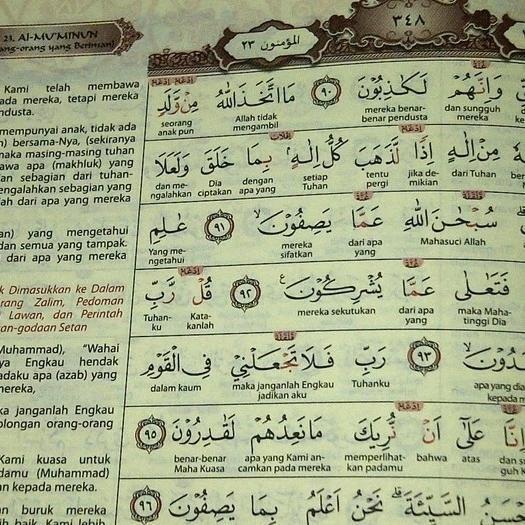 23. AL-MU'MINUN
ang-orang yang Beriman)
المؤمنون ٢٣
٣٤٨
Kami telah membawa
ada mereka, tetapi mereka
dusta.
mempunyai anak, tidak ada
n) bersama-Nya, (sekiranya
maka masing-masing tuhan
awa apa (makhluk) yang
an sebagian dari tuhan-
engalahkan sebagian yang
ah dari apa yang mereka
an) yang mengetahui
dan semua yang tampak.
dari apa yang mereka
k Dimasukkan ke Dalam
rang Zalim, Pedoman
Lawan, dan Perintah
an-godaan Setan
Muhammad), "Wahai
ya Engkau hendak
adaku apa (azab) yang
mereka,
ka janganlah Engkau
olongan orang-orang
Kami kuasa untuk
adamu (Muhammad)
an kepada mereka.
an buruk mereka
وَإِنَّهُمْ لَكَٰذِبُونَ ٩٠ مَا اتَّخَذَ اللَّهُ مِنْ وَّلَدٍ
dan sungguh mereka
mereka benar-benar pendusta
Allah tidak mengambil
seorang anak pun
مِنْ إِلَٰهٍ إِذًا لَّذَهَبَ كُلُّ إِلَٰهٍ بِمَا خَلَقَ وَلَعَلَا
dari Tuhan
jika demikian
tentu pergi
setiap Tuhan
dengan apa yang
Dia ciptakan
dan mengalahkan
سُبْحَٰنَ اللَّهِ عَمَّا يَصِفُونَ ٩١ عَٰلِمِ
Mahasuci Allah
dari apa yang
mereka sifatkan
Yang mengetahui
فَتَعَٰلَى عَمَّا يُشْرِكُونَ ٩٢ قُلْ رَّبِّ
maka Mahatinggi Dia
dari apa yang
mereka sekutukan
Katakanlah
Tuhanku
٩٣ رَبِّ فَلَا تَجْعَلْنِي فِي الْقَوْمِ
apa yang dia
Tuhanku
maka janganlah Engkau jadikan aku
dalam kaum
عَلَىٰ أَنْ نُّرِيَكَ مَا نَعِدُهُمْ لَقَٰدِرُونَ ٩٥
atas
bahwa
memperlihatkan padamu
apa yang Kami ancamkan pada mereka
benar-benar Maha Kuasa
السَّيِّئَةَ نَحْنُ أَعْلَمُ بِمَا يَصِفُونَ ٩٦